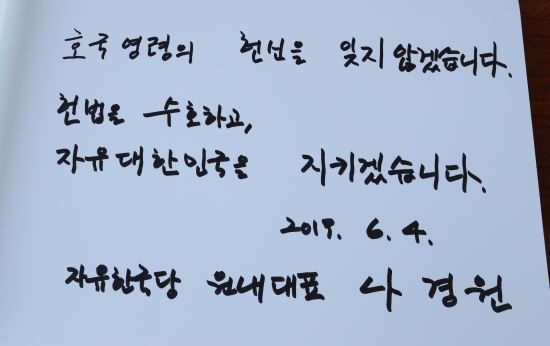 호국영령의 헌신을 잊지 않겠습니다.
헌법을 수호하고,
자유대한민국을 지키겠습니다.
2019. 6. 4.
자유한국당 원내대표 나경원